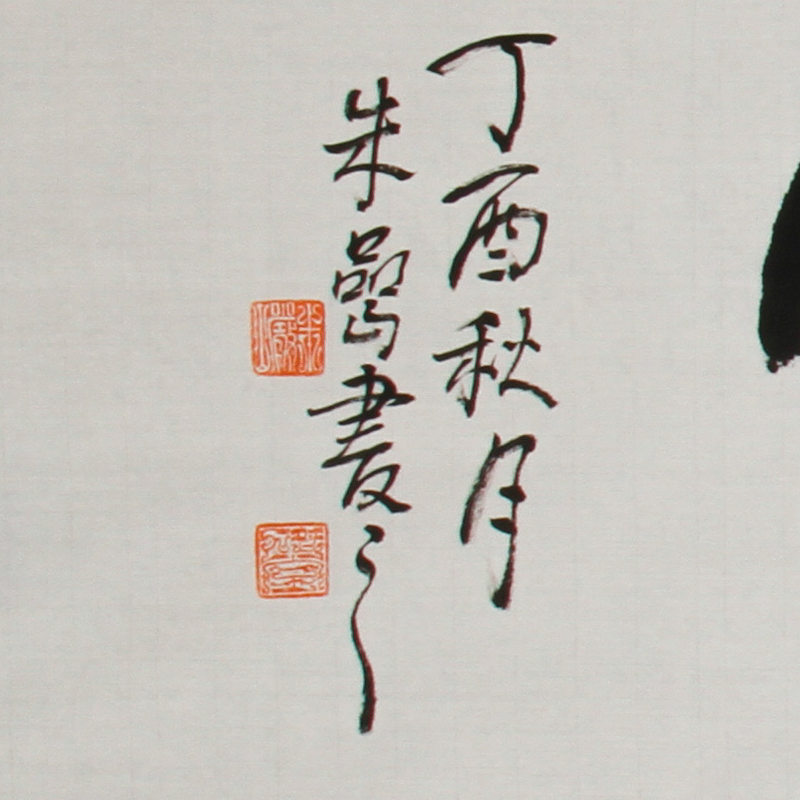 丁酉秋月
朱嵒書之